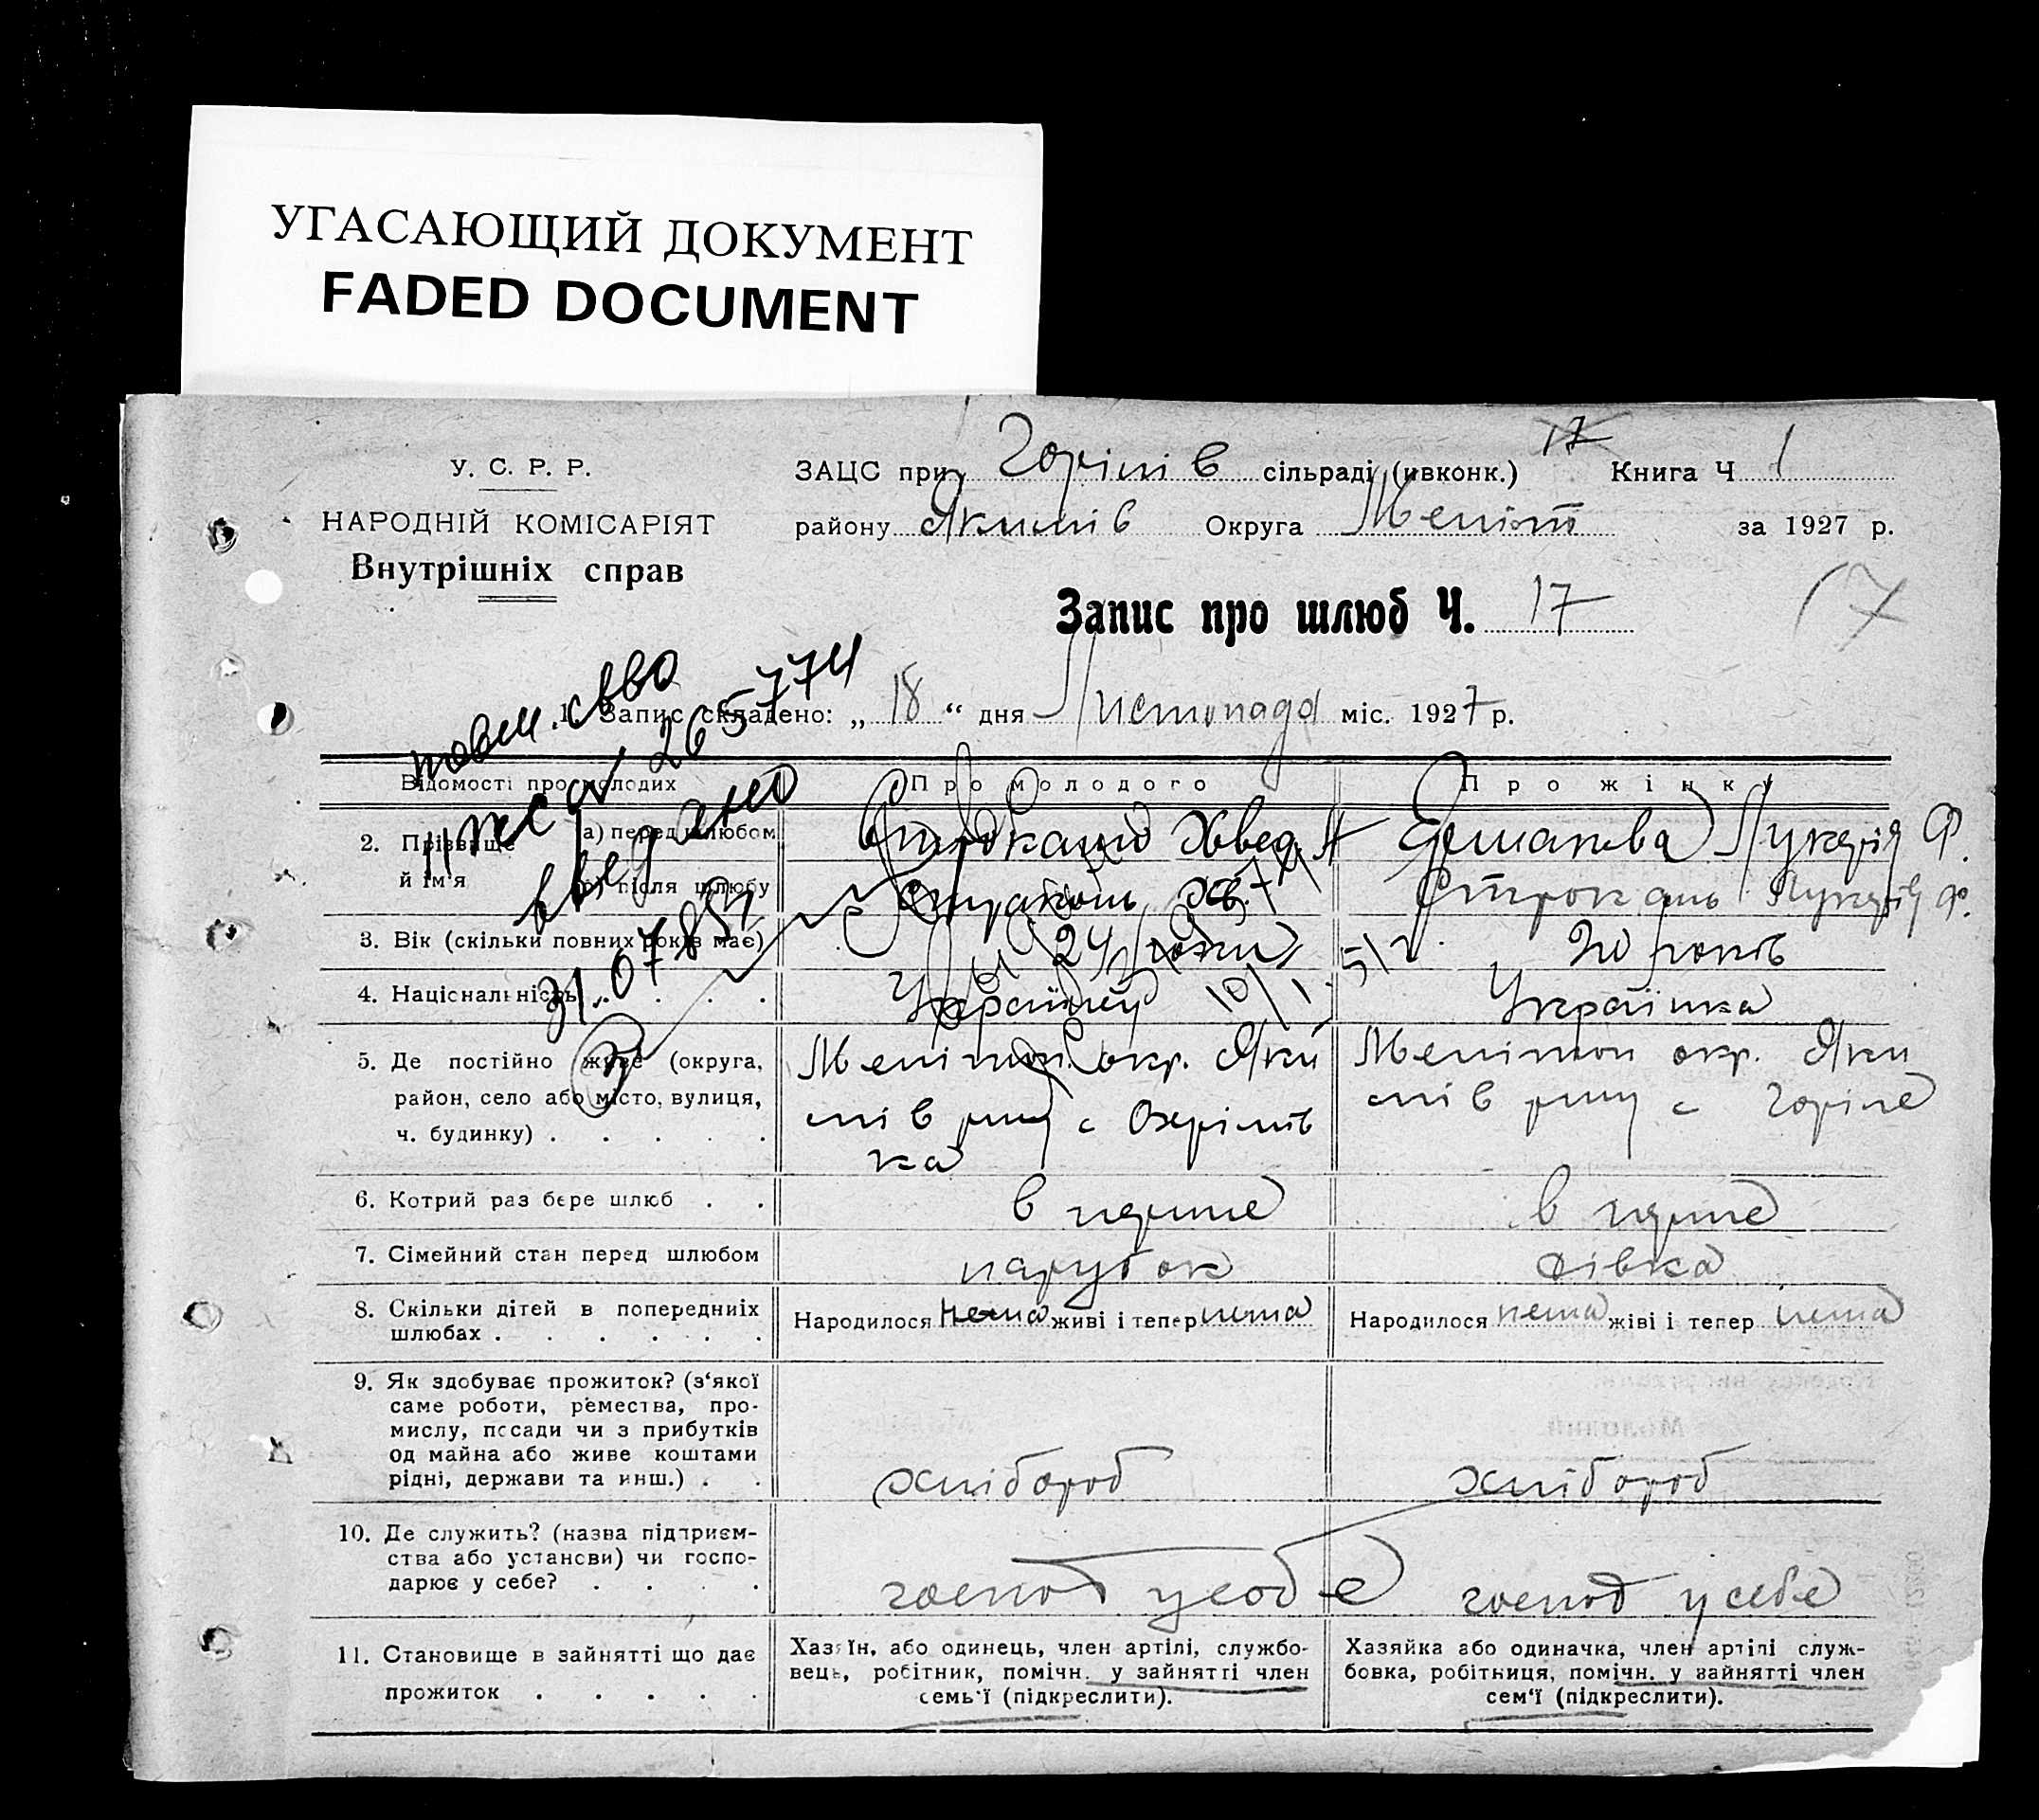 УГАСАЮЩИЙ ДОКУМЕНТ
FADED DOCUMENT
У. С. Р. Р.
НАРОДНІЙ КОМІСАРІЯТ
Внутрішніх справ
ЗАЦС при Горілів сільраді (ивконк.) 17 Книга Ч 1
району Якимів Округа Меліт за 1927 р.
Запис про шлюб Ч. 17
17
1. Запис складено: „ 18 “ дня Листопада міс. 1927 р.
Відомості про молодих
Про молодого
Про жінку
2. Прізвище й ім'я
а) перед шлюбом
Хвед. А
Лукерія Ф.
б) після шлюбу
Хв.
Строкань Лукерія Ф.
3. Вік (скільки повних років має)
24 роки
20 років
4. Національність
Українець
Українка
5. Де постійно живе (округа,
район, село або місто, вулиця,
ч. будинку)
Мелітоп. окр. Яки
мів рну с
ка
Мелітоп окр. Яки
мів рну с Горіле
6. Котрий раз бере шлюб
в перше
в перше
7. Сімейний стан перед шлюбом
парубок
дівка
8. Скільки дітей в попередниіх
шлюбах
Народилося нема живі і тепер нема
Народилося нема жіві і тепер нема
9. Як здобуває прожиток? (з‘якої
саме роботи, ремества, про-
мислу, посади чи з прибутків
од майна або живе коштами
рідні, держави та инш.)
хлібороб
хлібороб
10. Де служить? (назва підприєм-
ства або установи) чи госпо-
дарює у себе?
господ у себе
господ у себе
11. Становище в зайнятті що дає
прожиток
Хазяїн, або одинець, член артілі, службо-
вець, робітник, помічн. у зайнятті член
семь'ї (підкреслити).
Хазяйка або одиначка, член артілі служ-
бовка, робітниця, помічн. у зайнятті член
сем‘ї (підкреслити).